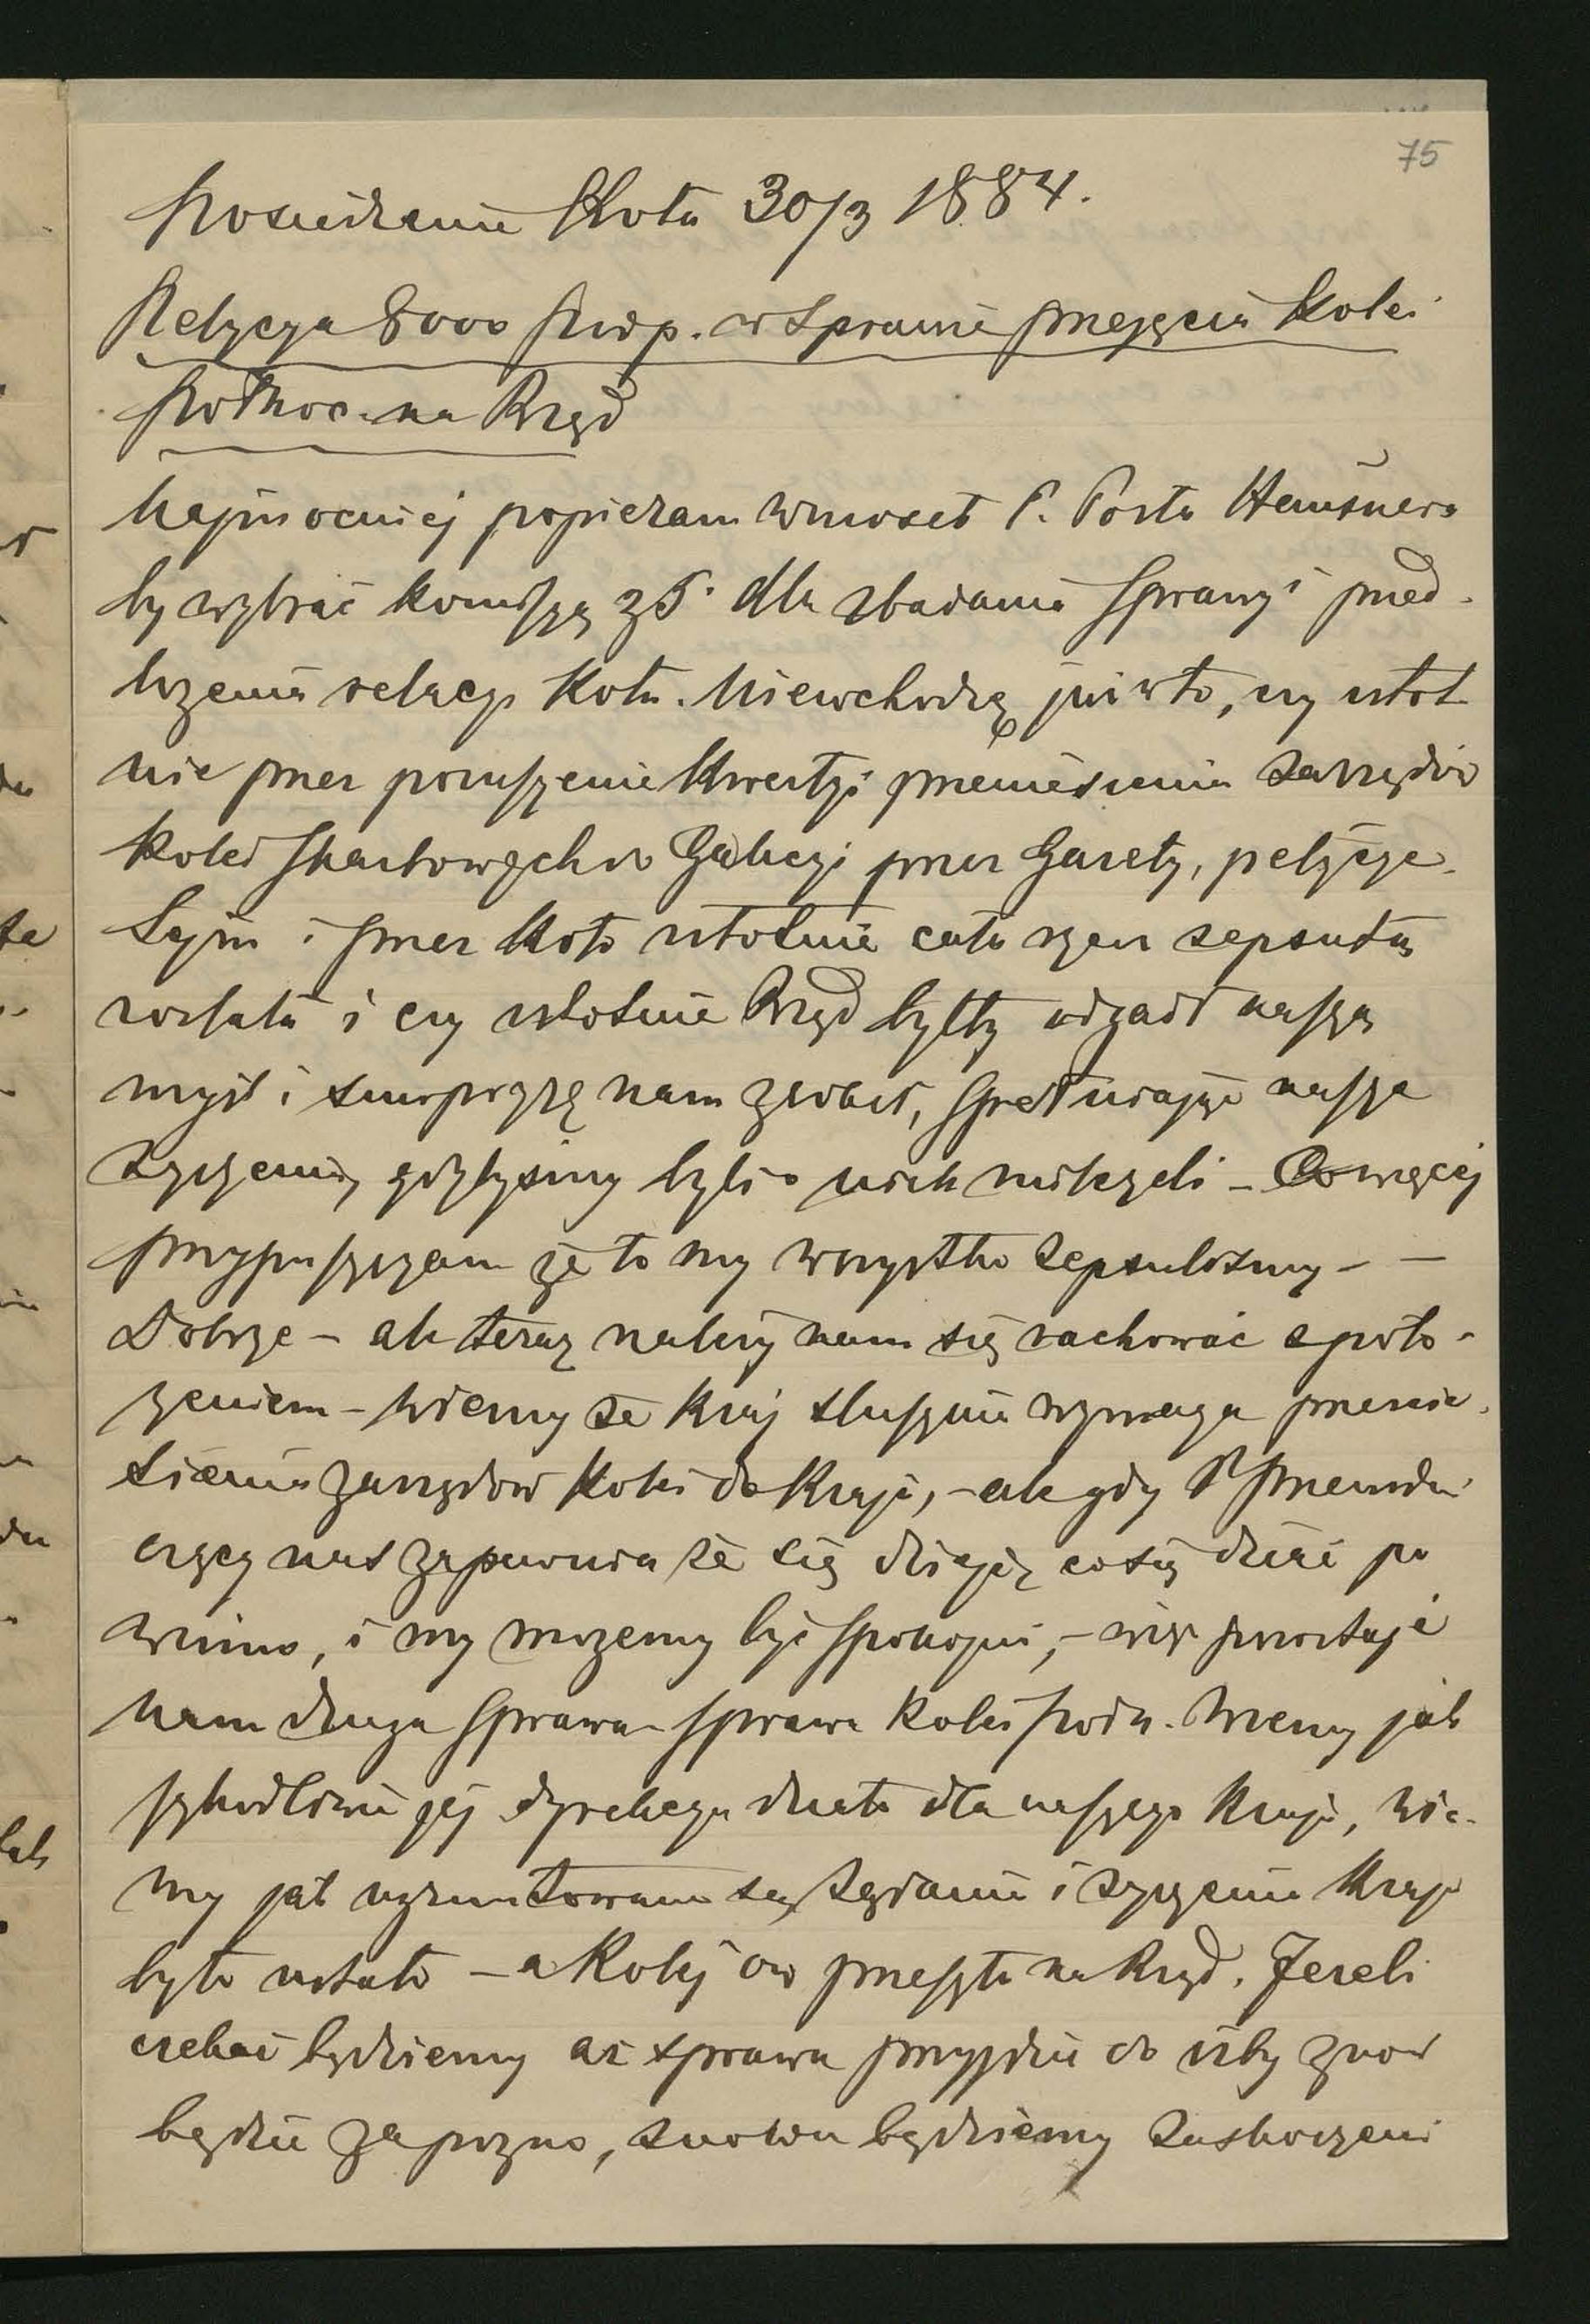 75
Posiedzenie Koła 30/3 1884.
Petycya 8000 podp. w sprawie przejęcia Kolei
Północ. na Rząd
Najmocniej popieram wniosek P. Posła Hausnera
by wybrać komisyą z 5. dla zbadania sprawy i przed-
łożenia relacyi Kołu. Nie wchodzę już w to, czy istot
nie przez poruszenie kwestyi przeniesienia zarządów
Kolei skarbowych do Galicyi przez Gazety, petycye
Sejm i przez Koło istotnie cała rzecz zepsutą
została i czy istotnie Rząd byłby odgadł naszą
myśl i surprizę nam zrobił, spełniając nasze
życzenia, gdybyśmy byli o nich milczeli – Co więcej
przypuszczam że to my wszystko zepsuliśmy – –
Dobrze – ale teraz należy nam się rachować z poło-
żeniem – wiemy że kraj słusznie wymaga przenie-
sienia zarządów Kolei do Kraju, – ale gdy P. Przewodni
czący nas zapewnia że się dzieje, co się dziać po
winno, i my możemy być spokojni, – więc pozostaje
nam druga sprawa – sprawa Kolei półn. Wiemy jak
szkodliwie jej dyrekcya działa dla naszego Kraju, wie-
my jak ugruntowane są żądania i życzenia Kraju
było ustało – a Kolej ow przeszła na Rząd. Jeżeli
czekać będziemy aż sprawa przyjdzie do izby znów
będzie zapozno, znowu będziemy zaskoczeni